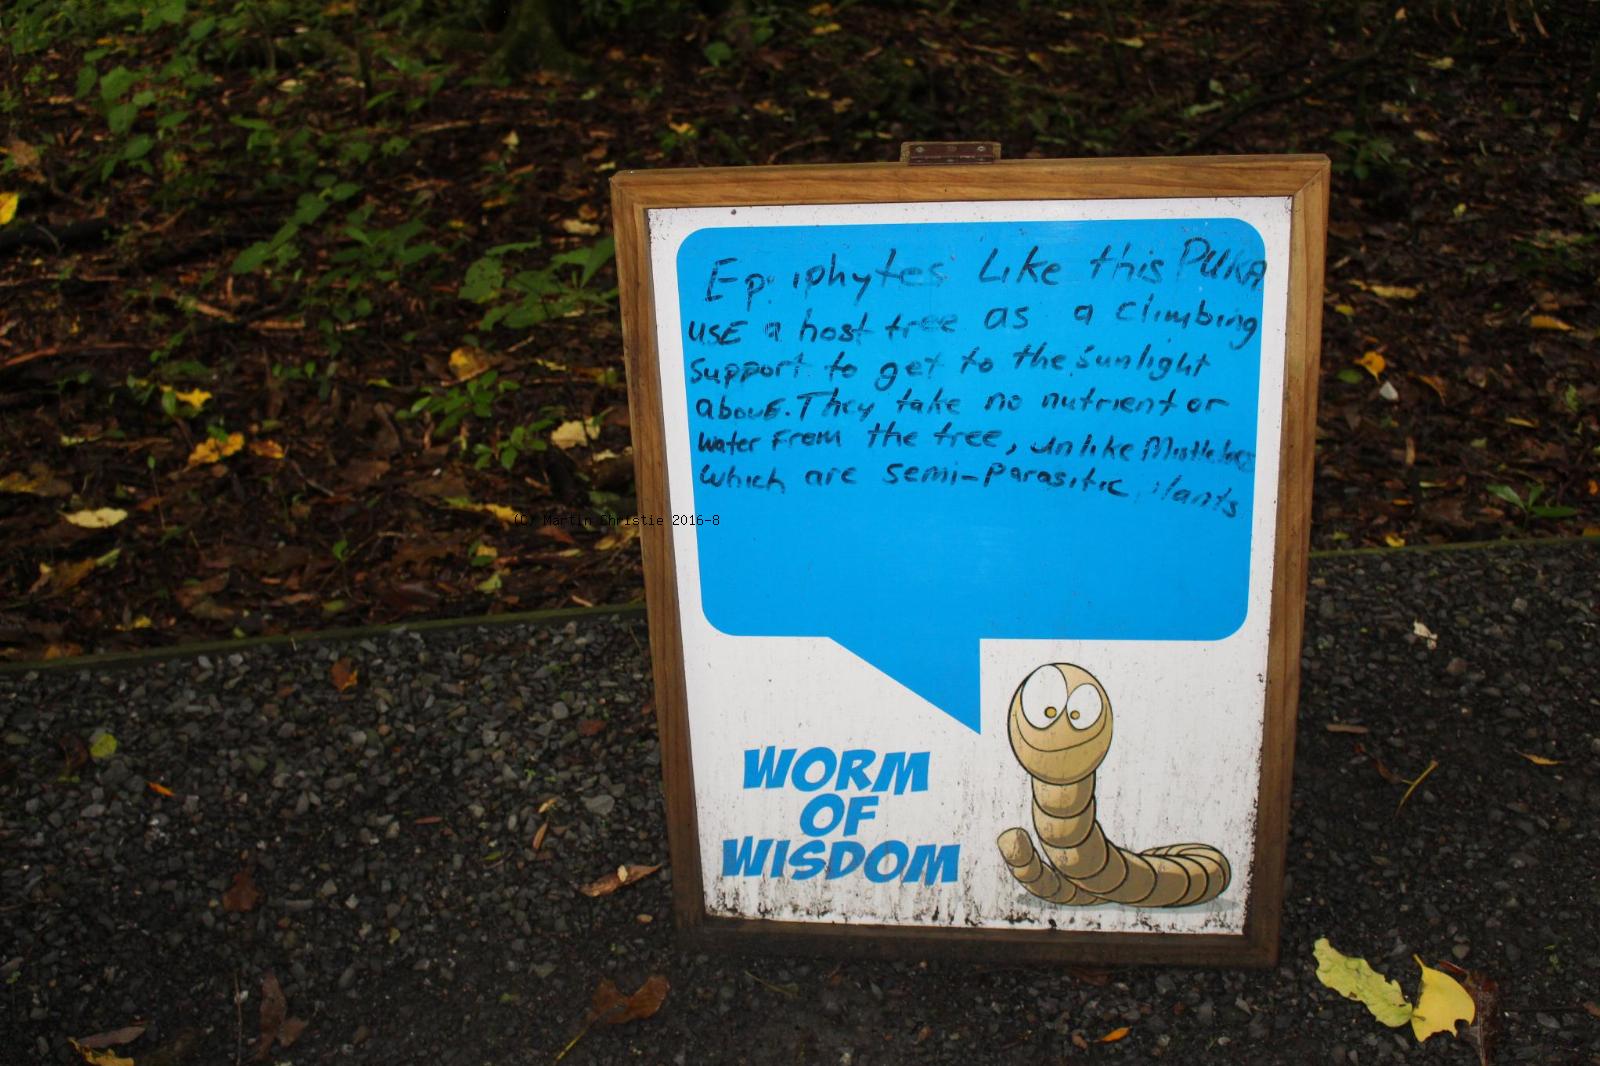 Epiphytes Like this PUKA
USE a host tree as a climbing
support to get to the sunlight
above. They take no nutrient or
water From the tree, unlike Mistletoes
which are semi-parasitic plants
(C) Martin Christie 2016-8
WORM
OF
WISDOM